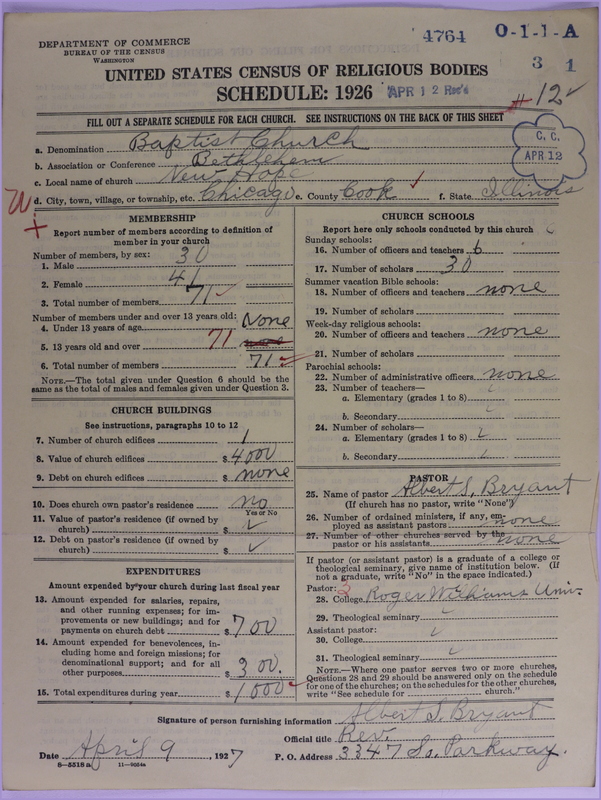 DEPARTMENT OF COMMERCE
BUREAU OF THE CENSUS
WASHINGTON
4764 O-1-1-A
3 1
UNITED STATES CENSUS OF RELIGIOUS BODIES
SCHEDULE: 1926 APR 12 Rec'd
# 12 ✓
FILL OUT A SEPARATE SCHEDULE FOR EACH CHURCH. SEE INSTRUCTIONS ON THE BACK OF THIS SHEET
C. C.
APR 12
a. Denomination Baptist Church
b. Association or Conference Bethlehem
c. Local name of church New Hope
d. City, town, village, or township, etc. Chicago e. County Cook ✓ f. State Illinois
MEMBERSHIP
Report number of members according to definition of
member in your church
Number of members, by sex:
1. Male 30
2. Female 41
3. Total number of members 71 ✓
Number of members under and over 13 years old:
4. Under 13 years of age None
5. 13 years old and over 71
6. Total number of members 71 ✓
NOTE.—The total given under Question 6 should be
the same as the total of males and females given under Question 3.
CHURCH BUILDINGS
See instructions, paragraphs 10 to 12
7. Number of church edifices 1
8. Value of church edifices $ 4000
9. Debt on church edifices $ none
10. Does church own pastor's residence? no
Yes or No
11. Value of pastor's residence (if owned by
church) $ ✓
12. Debt on pastor's residence (if owned by
church) $ ✓
EXPENDITURES
Amount expended by your church during last fiscal year
13. Amount expended for salaries, repairs,
and other running expenses; for im-
provements or new buildings; and for
payments on church debt $ 700
14. Amount expended for benevolences, in-
cluding home and foreign missions; for
denominational support; and for all
other purposes $ 300.
15. Total expenditures during year $ 1000 ✓
CHURCH SCHOOLS
Report here only schools conducted by this church
Sunday schools:
16. Number of officers and teachers 6
17. Number of scholars 30
Summer vacation Bible schools:
18. Number of officers and teachers none
19. Number of scholars
Week-day religious schools:
20. Number of officers and teachers none
21. Number of scholars
Parochial schools:
22. Number of administrative officers none
23. Number of teachers—
a. Elementary (grades 1 to 8)
b. Secondary
24. Number of scholars—
a. Elementary (grades 1 to 8)
b. Secondary
PASTOR
25. Name of pastor Albert S. Bryant
(If church has no pastor, write "None")
26. Number of ordained ministers, if any, em-
ployed as assistant pastors none
27. Number of other churches served by the
pastor or his assistants none
If pastor (or assistant pastor) is a graduate of a college or
theological seminary, give name of institution below. (If
not a graduate, write "No" in the space indicated.)
Pastor:
28. College Roger Williams Univ.
29. Theological seminary
Assistant pastor:
30. College
31. Theological seminary
NOTE.—Where one pastor serves two or more churches,
Questions 28 and 29 should be answered only on the schedule
for one of the churches; on the schedules for the other churches,
write "See schedule for church."
Signature of person furnishing information Albert S. Bryant
Official title Rev.
Date April 9, 1927 P. O. Address 3347 So. Parkway.
8—5518a 11—9034a